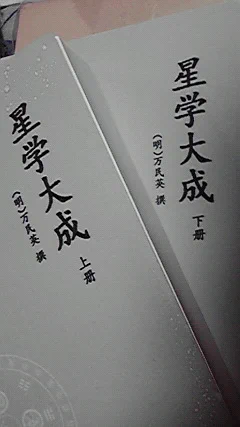 星学大成
(明)万民英 撰
上册
星学大成
(明)万民英 撰
下册